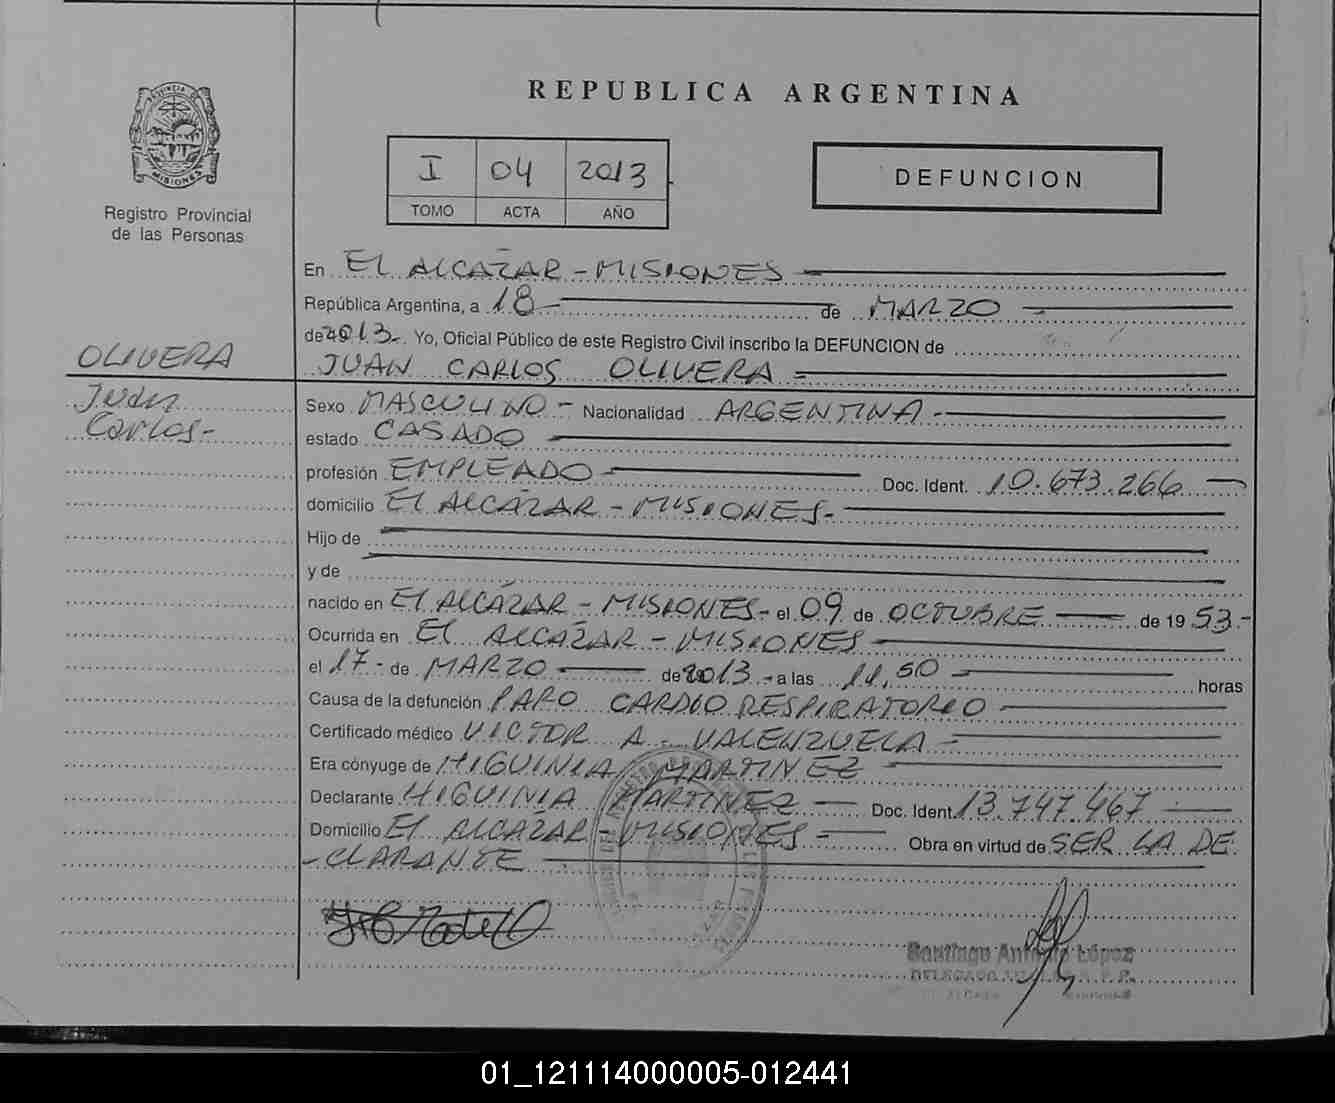 REPUBLICA ARGENTINA
PROVINCIA DE
MISIONES
Registro Provincial
de las Personas
I 04 2013
TOMO ACTA AÑO
DEFUNCION
En EL ALCAZAR - MISIONES
República Argentina, a 18 de MARZO
de 2013. Yo, Oficial Público de este Registro Civil inscribo la DEFUNCION de
OLIVERA
JUAN CARLOS OLIVERA
Juan
Carlos-
Sexo MASCULINO - Nacionalidad ARGENTINA -
estado CASADO
profesión EMPLEADO Doc. Ident. 10.673.266
domicilio EL ALCAZAR - MISIONES.
Hijo de
y de
nacido en EL ALCAZAR - MISIONES - el 09 de OCTUBRE de 1953.-
Ocurrida en EL ALCAZAR - MISIONES
el 17 - de MARZO de 2013 - a las 11,50 horas
Causa de la defunción PARO CARDIO RESPIRATORIO
Certificado médico VICTOR A. VALENZUELA
Era cónyuge de HIGUINIA MARTINEZ
Declarante HIGUINIA MARTINEZ Doc. Ident. 13.747.467
Domicilio EL ALCAZAR - MISIONES - Obra en virtud de SER LA DE
- CLARANTE
Santiago Antonio López
DELEGADO
01_121114000005-012441